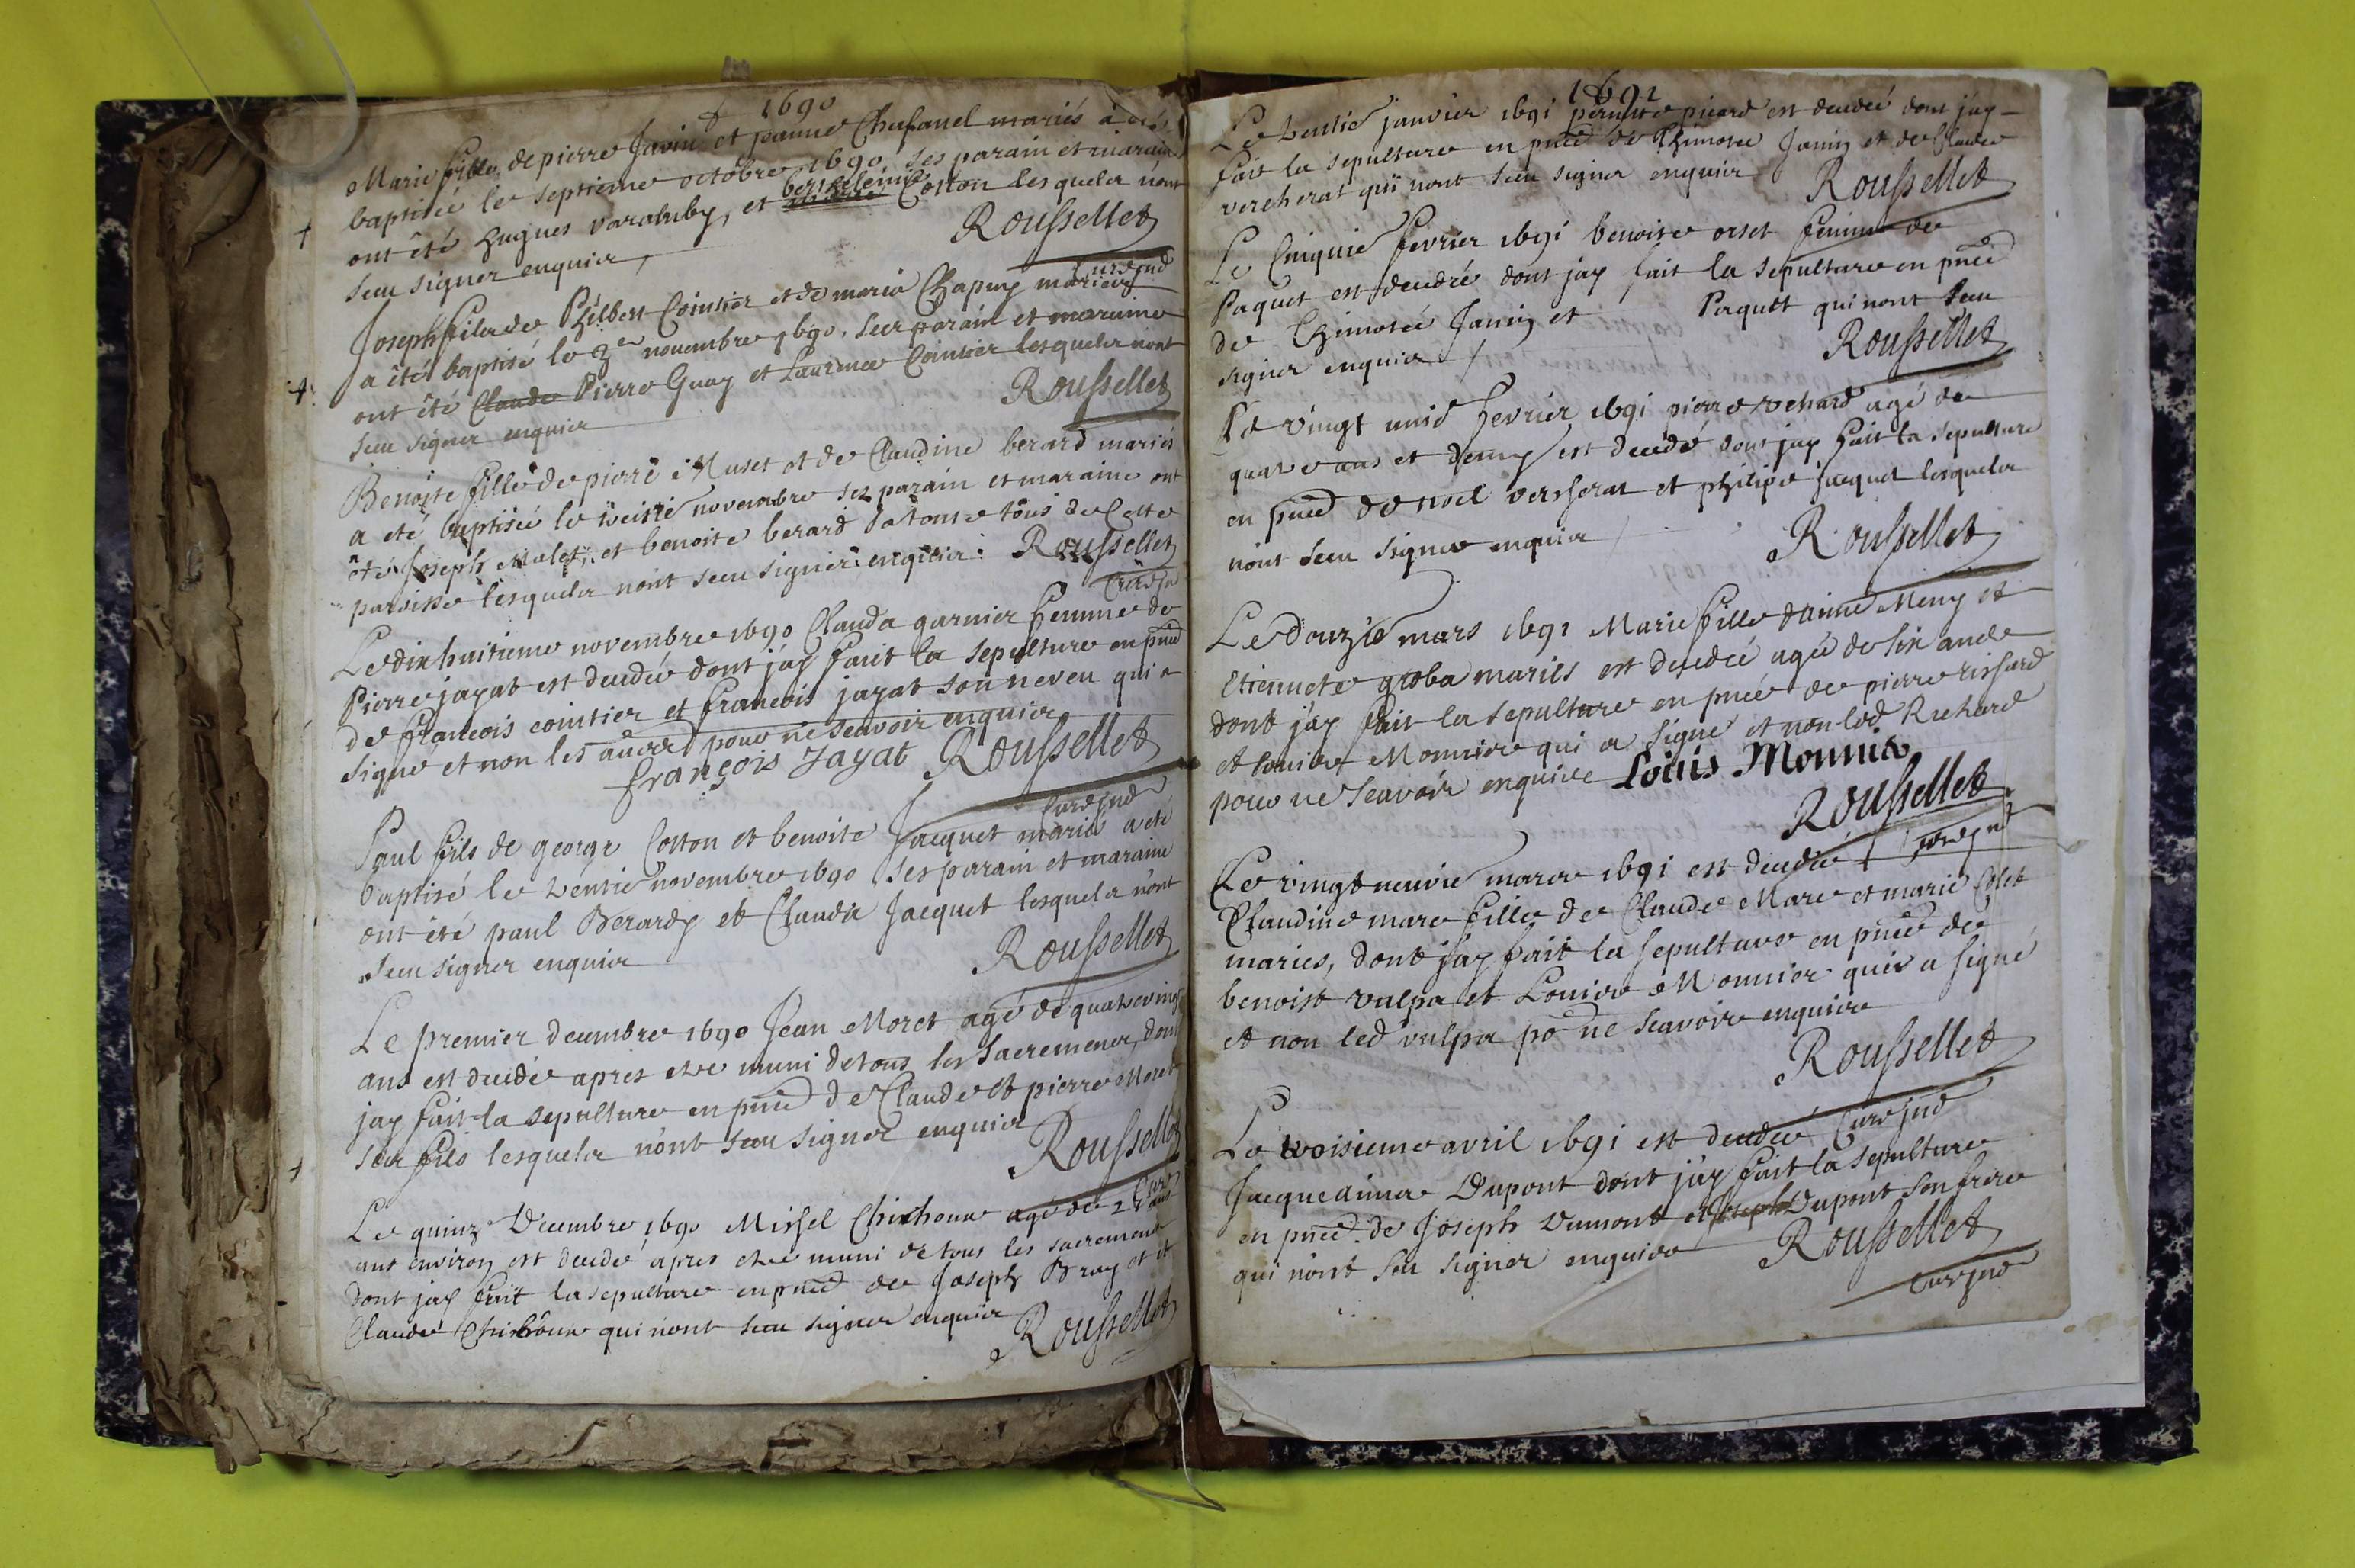 1690
Marie fille de pierre Javin et Chafanel mariés à été
baptisée le septieme octobre 1690. ses parain et maraine
ont été hugues varaluby, et Coston lesquels nont
sceu signer enquis
Rousselet
Curé jnd
Joseph fils de Philbert Cointier et de maria Chapuy mariers
a été baptisé le 3e novembre 1690. ses parain et maraine
ont été Claude Pierre Guay et Laurence Cointier lesquels nont
sceu signer enquis
Rousselet
Benoite fille de pierre Muset et de Claudine berard mariés
a eté baptisée le novembre ses parain et maraine ont
été Joseph Mulet, et benoite berard sa tante tous de Cette
paroisse lesquels nont sceu signer enquis. Rousselet
Le dix huitieme novembre 1690 Clauda garnier femme de
Pierre jayat est decedée dont jay fait la sepulture en pnce
de francois cointier et francois jayat son neveu qui a
signe et non les autres pour ne scavoir enquis
françois Jayat Rousselet
Curé jnd
Paul fils de george Coston et benoite Jacquet mariés a eté
baptisé le trentie novembre 1690 ses parain et maraine
ont été paul Berardy et Clauda Jacquet lesquels nont
sceu signer enquis
Rousselet
Le premier decembre 1690 Jean Moret agé de quatreving
ans est decedé apres etre muni de tous les sacremens, dont
jay fait la sepulture en pnce de Claude et pierre Moret
ses fils lesquels nont sceu signer enquis
Rousselet
Curé
Le quinz Decembre 1690 Missel Chichoux agé de
ans environ est decedé apres etre muni de tous les sacremens
dont jay fait la sepulture en pnce de Joseph Bray et
Claude Chichoux qui nont sceu signer enquis
Rousselet
1691
Le trentie janvier 1691 pernette picard est decedée dont jay
fait la sepulture en pnce de Thimotee Janin et de Claude
vercherat qui nont sceu signer enquis Rousselet
Le Cinquie fevrier 1691 benoite orset femme de
Paquet est decedée dont jay fait la sepulture en pnce
de Thimotée Janin et Paquet qui nont sceu
signer enquis
Rousselet
Le vingt unie fevrier 1691 pierre rehard agé de
quatre ans et demy est decedé dont jay fait la sepulture
en pnce de noel versserat et philipe jacquet lesquels
nont sceu signer enquis
Rousselet
Le douzie mars 1691 Marie fille daimé Meny et
etiennete groba mariés est decedée agée de six ans
dont jay fait la sepulture en pnce de pierre rissard
et Louis Monnier qui a signé et non led Richard
pour ne scavoir enquis Louis Monnier
Rousselet
Curé jnd
Le vingt neuvie mars 1691 est decedée
Claudine mare fille de Claude Mare et marie Colet
mariés, dont jay fait la sepulture en pnce de
benoist vulpa et Louis Monnier qui a signé
et non led vulpa po ne scavoir enquis
Rousselet
Curé jnd
Le troisieme avril 1691 est decedée
Jacquemine Dupont dont jay fait la sepulture
en pnce de Joseph Dumont et Joseph Dupont son frere
qui nont sceu signer enquis Rousselet
Curé jnd